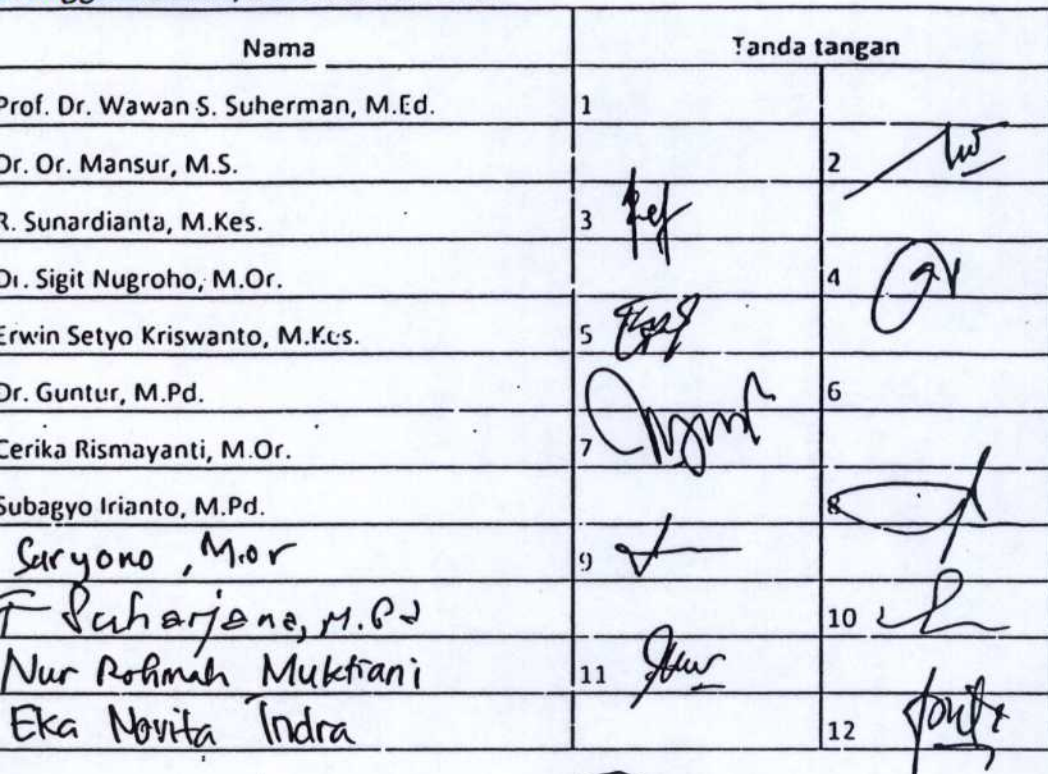 Nama Tanda tangan
Prof. Dr. Wawan S. Suherman, M.Ed. 1
Dr. Or. Mansur, M.S. 2
R. Sunardianta, M.Kes. 3
Dr. Sigit Nugroho, M.Or. 4
Erwin Setyo Kriswanto, M.Kes. 5
Dr. Guntur, M.Pd. 6
Cerika Rismayanti, M.Or. 7
Subagyo Irianto, M.Pd. 8
Suryono, M.or 9
F Suharjana, M.Pd 10
Nur Rohmah Muktiani 11
Eka Novita Indra 12